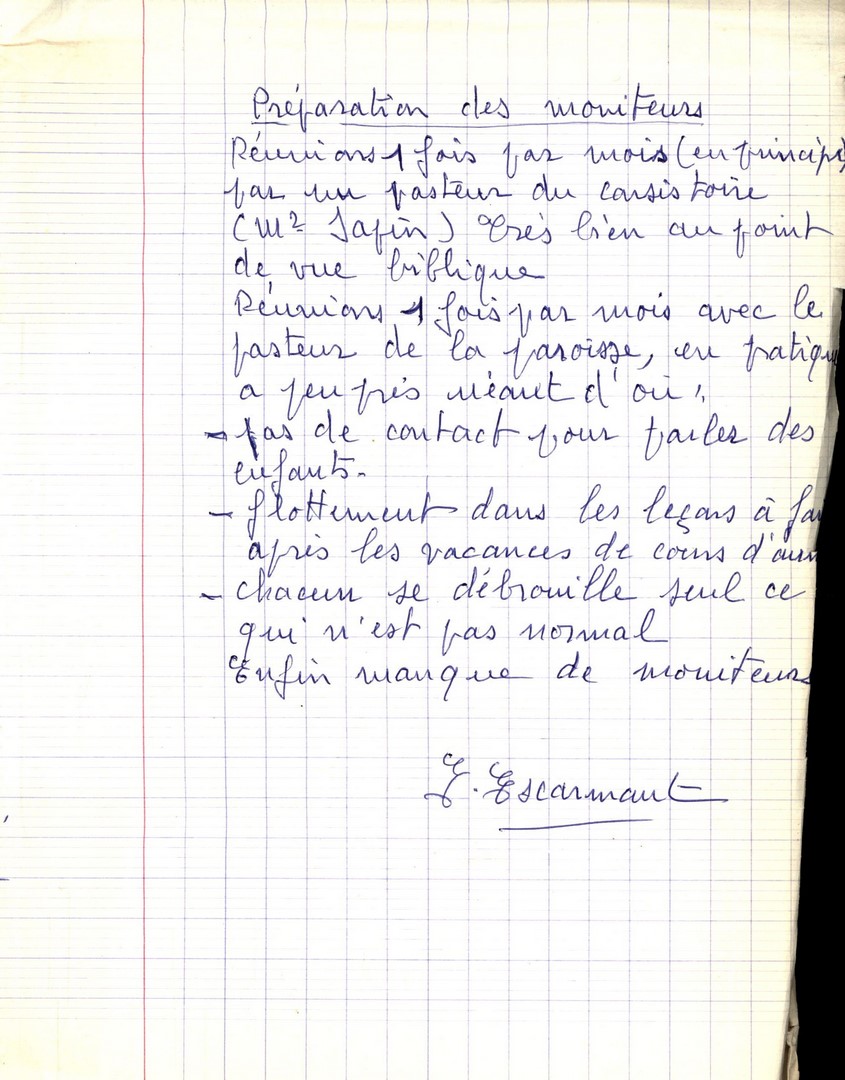 Préparation des moniteurs
Réunions 1 fois par mois (en principe
par un pasteur du consistoire
(Mr Safin) Très bien au point
de vue biblique
Réunions 1 fois par mois avec le
pasteur de la paroisse, en pratique
a peu près néant d'où :
- pas de contact pour parler des
enfants.
- flottement dans les leçons à fai
après les vacances de cours d'ann
- chacun se débrouille seul ce
qui n'est pas normal
Enfin manque de moniteurs
Escarmant